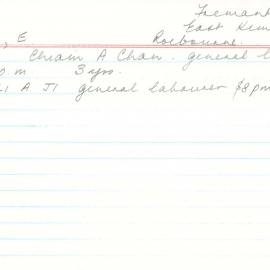 East Kim
, E. Roebourne.
Chiam A Chan. general l
p m 3 yrs.
A JI general labourer $8 pm